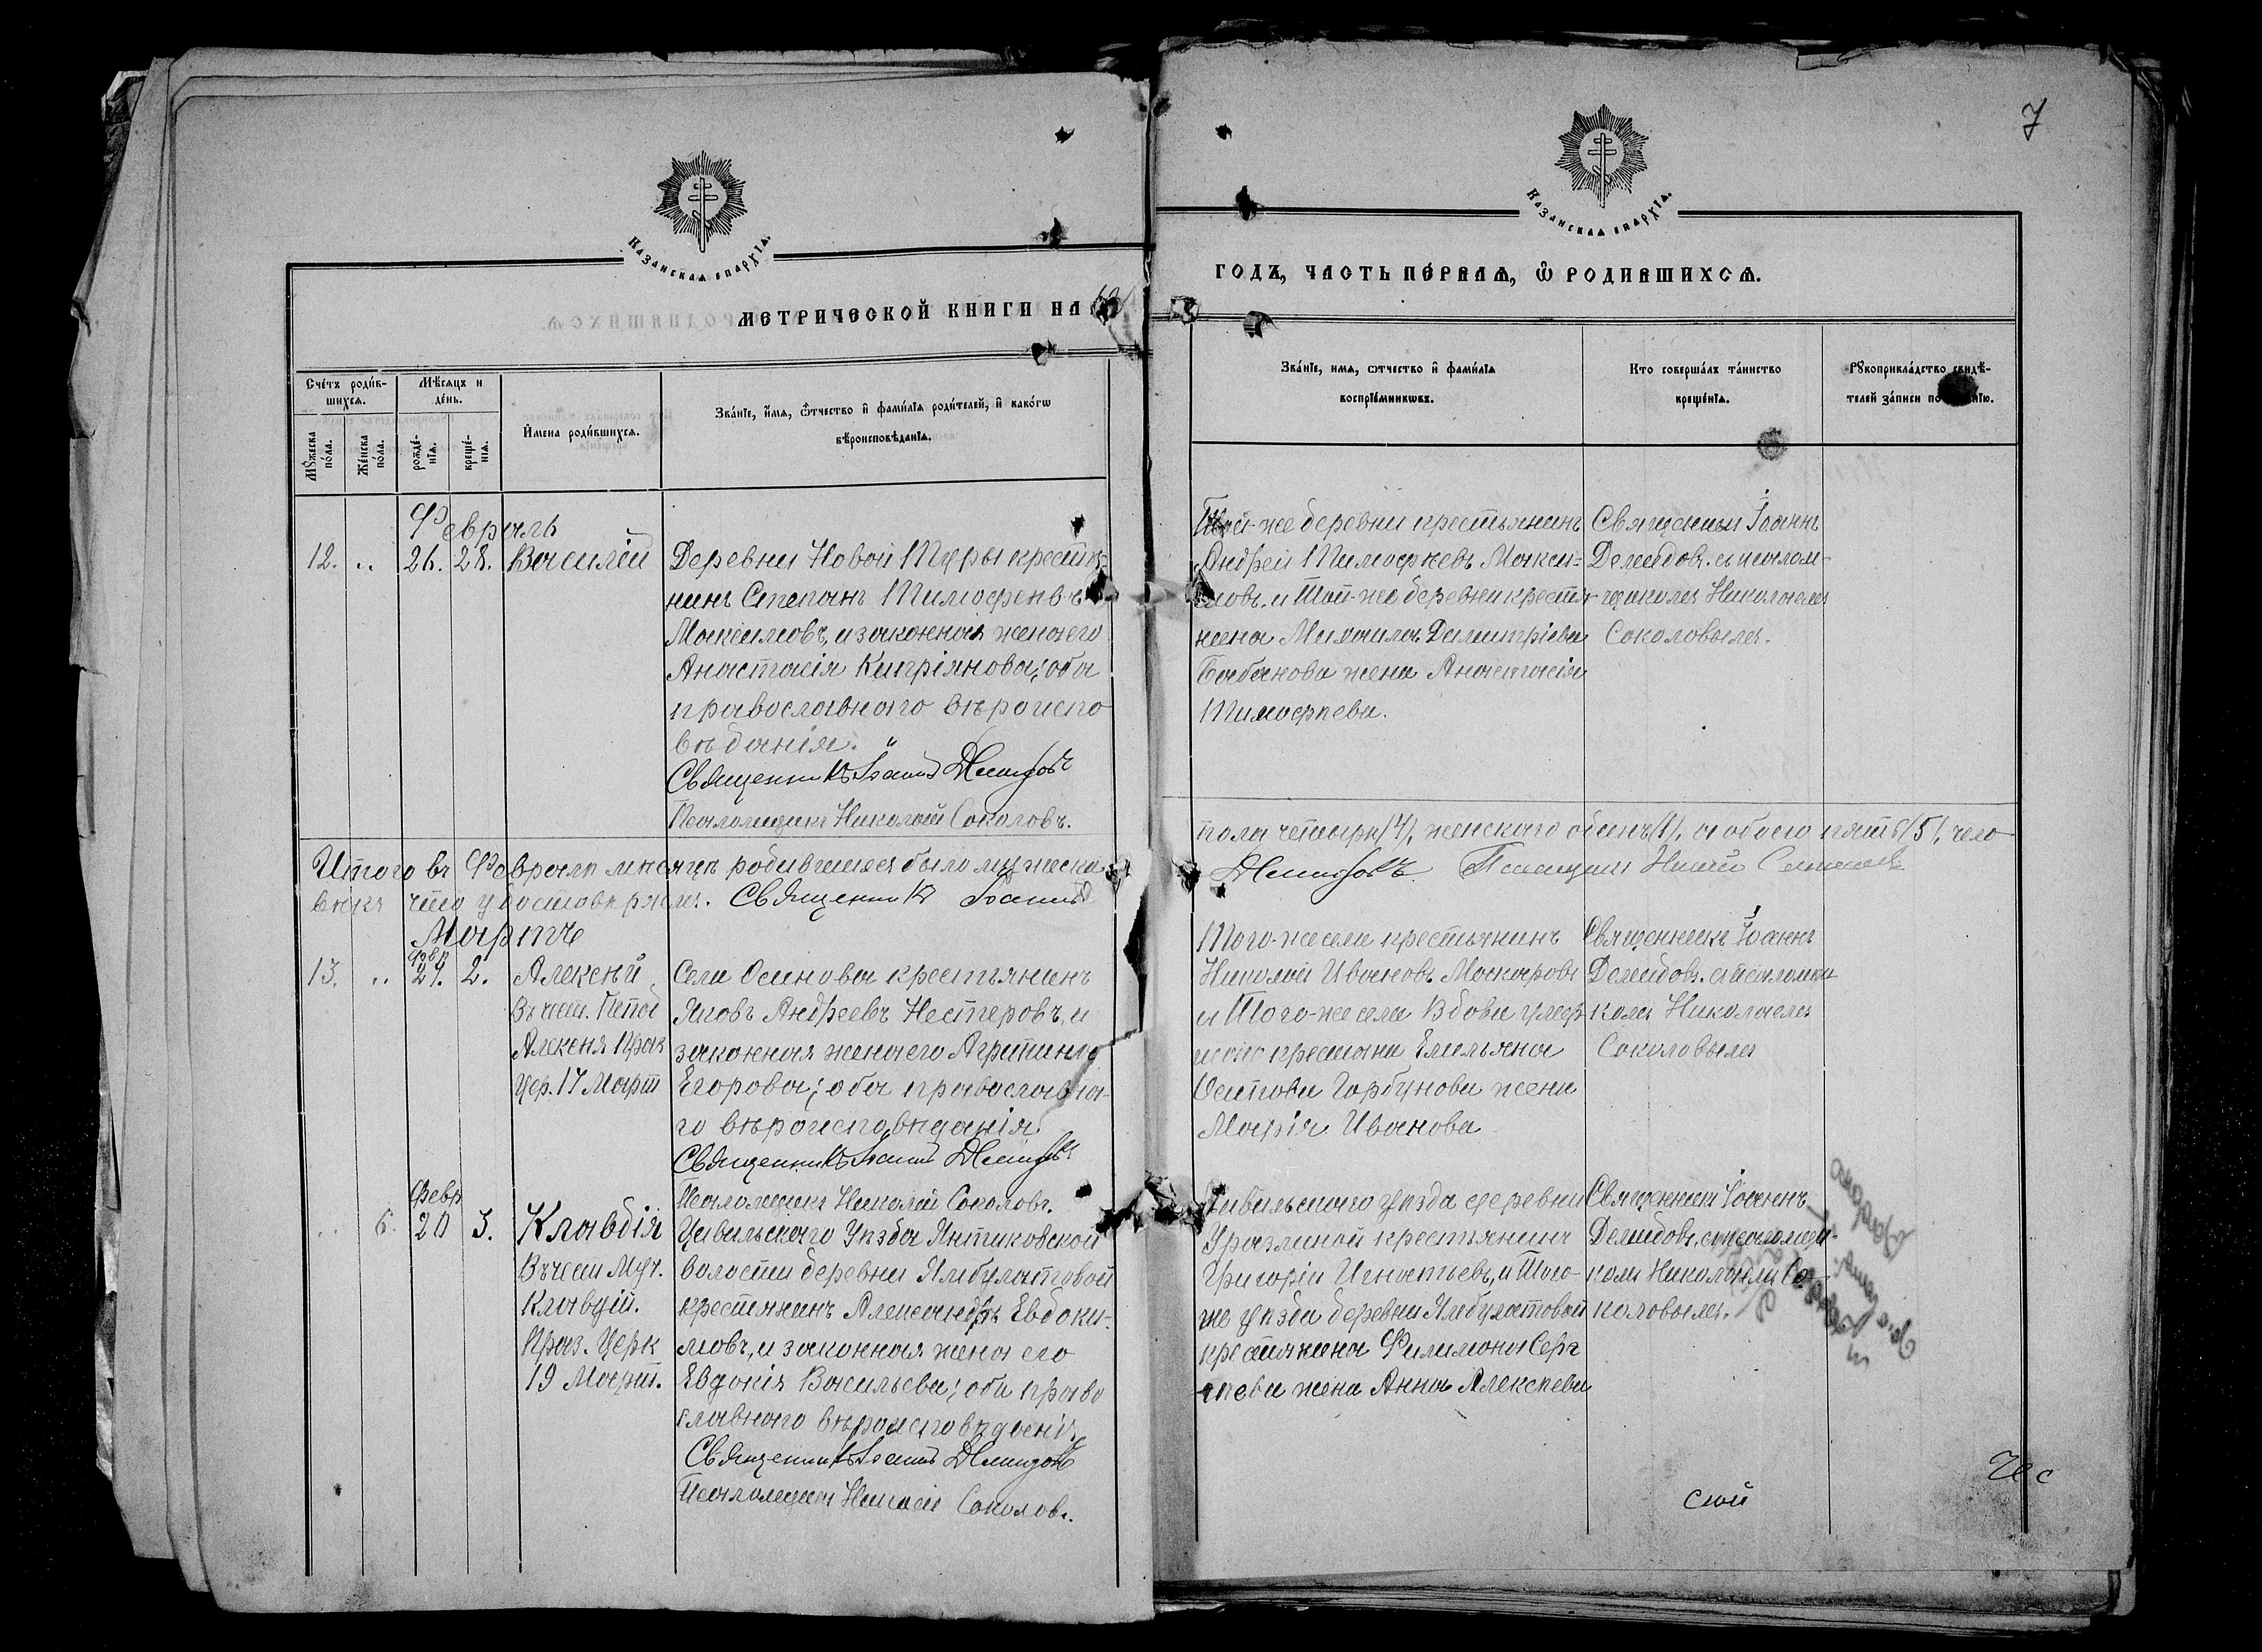 7
Казанская епархїѧ.
Казанская епархїѧ.
МЕТРИЧЕСКОЙ КНИГИ НА
ГОДЪ, ЧАСТЬ ПЕ́РВАѦ, Ѡ҆ РОДИВШИХСѦ.
Сче́тъ роди́в-
шихсѧ.
Мѣ́сѧцъ и
де́нь.
Мꙋ́жеска
по́ла.
Же́нска
по́ла.
рожде́-
нїѧ.
креще́-
нїѧ.
И҆мена роди́вшихсѧ.
Зва́нїе, и҆́мѧ, ѻ҆́тчество и҆ фами́лїѧ роди́телей, и҆ како́гѡ
вѣроисповѣ́данїѧ.
Зва́нїе, имѧ, ѻтчество и҆ фами́лїѧ
воспрїе́мникѡвъ.
Кто соверша́лъ та́инство
креще́нїѧ.
Рꙋкоприкла́дство свидѣ́-
телей за́писи по
Февраль
12. .. 26. 28. Василій
Деревни Новой Туры крестья-
нинъ Степанъ Тимофеевъ
Максимовъ, и законная жена его
Анастасія Кипріянова; оба
православнаго вѣроиспо
вѣданія.
Священникъ Іоаннъ Демидовъ
Псаломщикъ Николай Соколовъ.
Той-же деревни крестьянинъ
Андрей Тимофѣевъ Макси-
мовъ. и Той-же деревни крестья
нина Михаила Димитріева
Бабанова жена Анастасія
Тимофѣева.
Священникъ Іоаннъ
Демидовъ. съ псалом-
щикомъ Николаемъ
Соколовымъ.
Итого въ Февралѣ мѣсяцѣ родившихся было мужеска
пола четыре /4/, женскаго одинъ /1/, а обоего пять /5/, чело
вѣкъ что удостовѣряемъ. Священникъ Іоаннъ
Демидовъ. Псаломщикъ Николай Соколовъ
Мартъ
Февр
13. .. 29. 2. Алексѣй
Въ чест. Препод
Алексѣя Праз
Цер. 17 Март
Села Осинова крестьянинъ
Яковъ Андреевъ Нестеровъ, и
законная жена его Агрипина
Егорова; оба православна-
го вѣроисповѣданія
Священникъ Іоаннъ Демидовъ
Псаломщикъ Николай Соколовъ.
Того-же села крестьянинъ
Николай Ивановъ Макаровъ
и Того-же села Вдова умер
шаго крестьяна Емельяна
Осипова Горбунова жена
Марія Иванова
Священникъ Іоаннъ
Демидовъ. съ псаломщи
комъ Николаемъ
Соколовымъ
Февр
.. 6. 20 3. Клавдія
Въ чест Муч.
Клавдій.
Праз. Церк
19 Март.
Цивильскаго Уѣзда Янтиковской
волости деревни Ямбулатовой
крестьянинъ Александръ Евдоки-
мовъ, и законная жена его
Евдокія Васильева; оба право
славнаго вѣроисповѣданія
Священникъ Іоаннъ Демидовъ
Псаломщикъ Николай Соколовъ.
Цивильскаго уѣзда деревни
Уразлиной крестьянинъ
Григорій Игнатьевъ, и Того-
же уѣзда деревни Ямбулатовой
крестьянина Филимона Серг
ѣева жена Анна Алексѣева
Священникъ Іоаннъ
Демидовъ, съ псаломщи-
комъ Николаемъ Со-
коловымъ.
ской